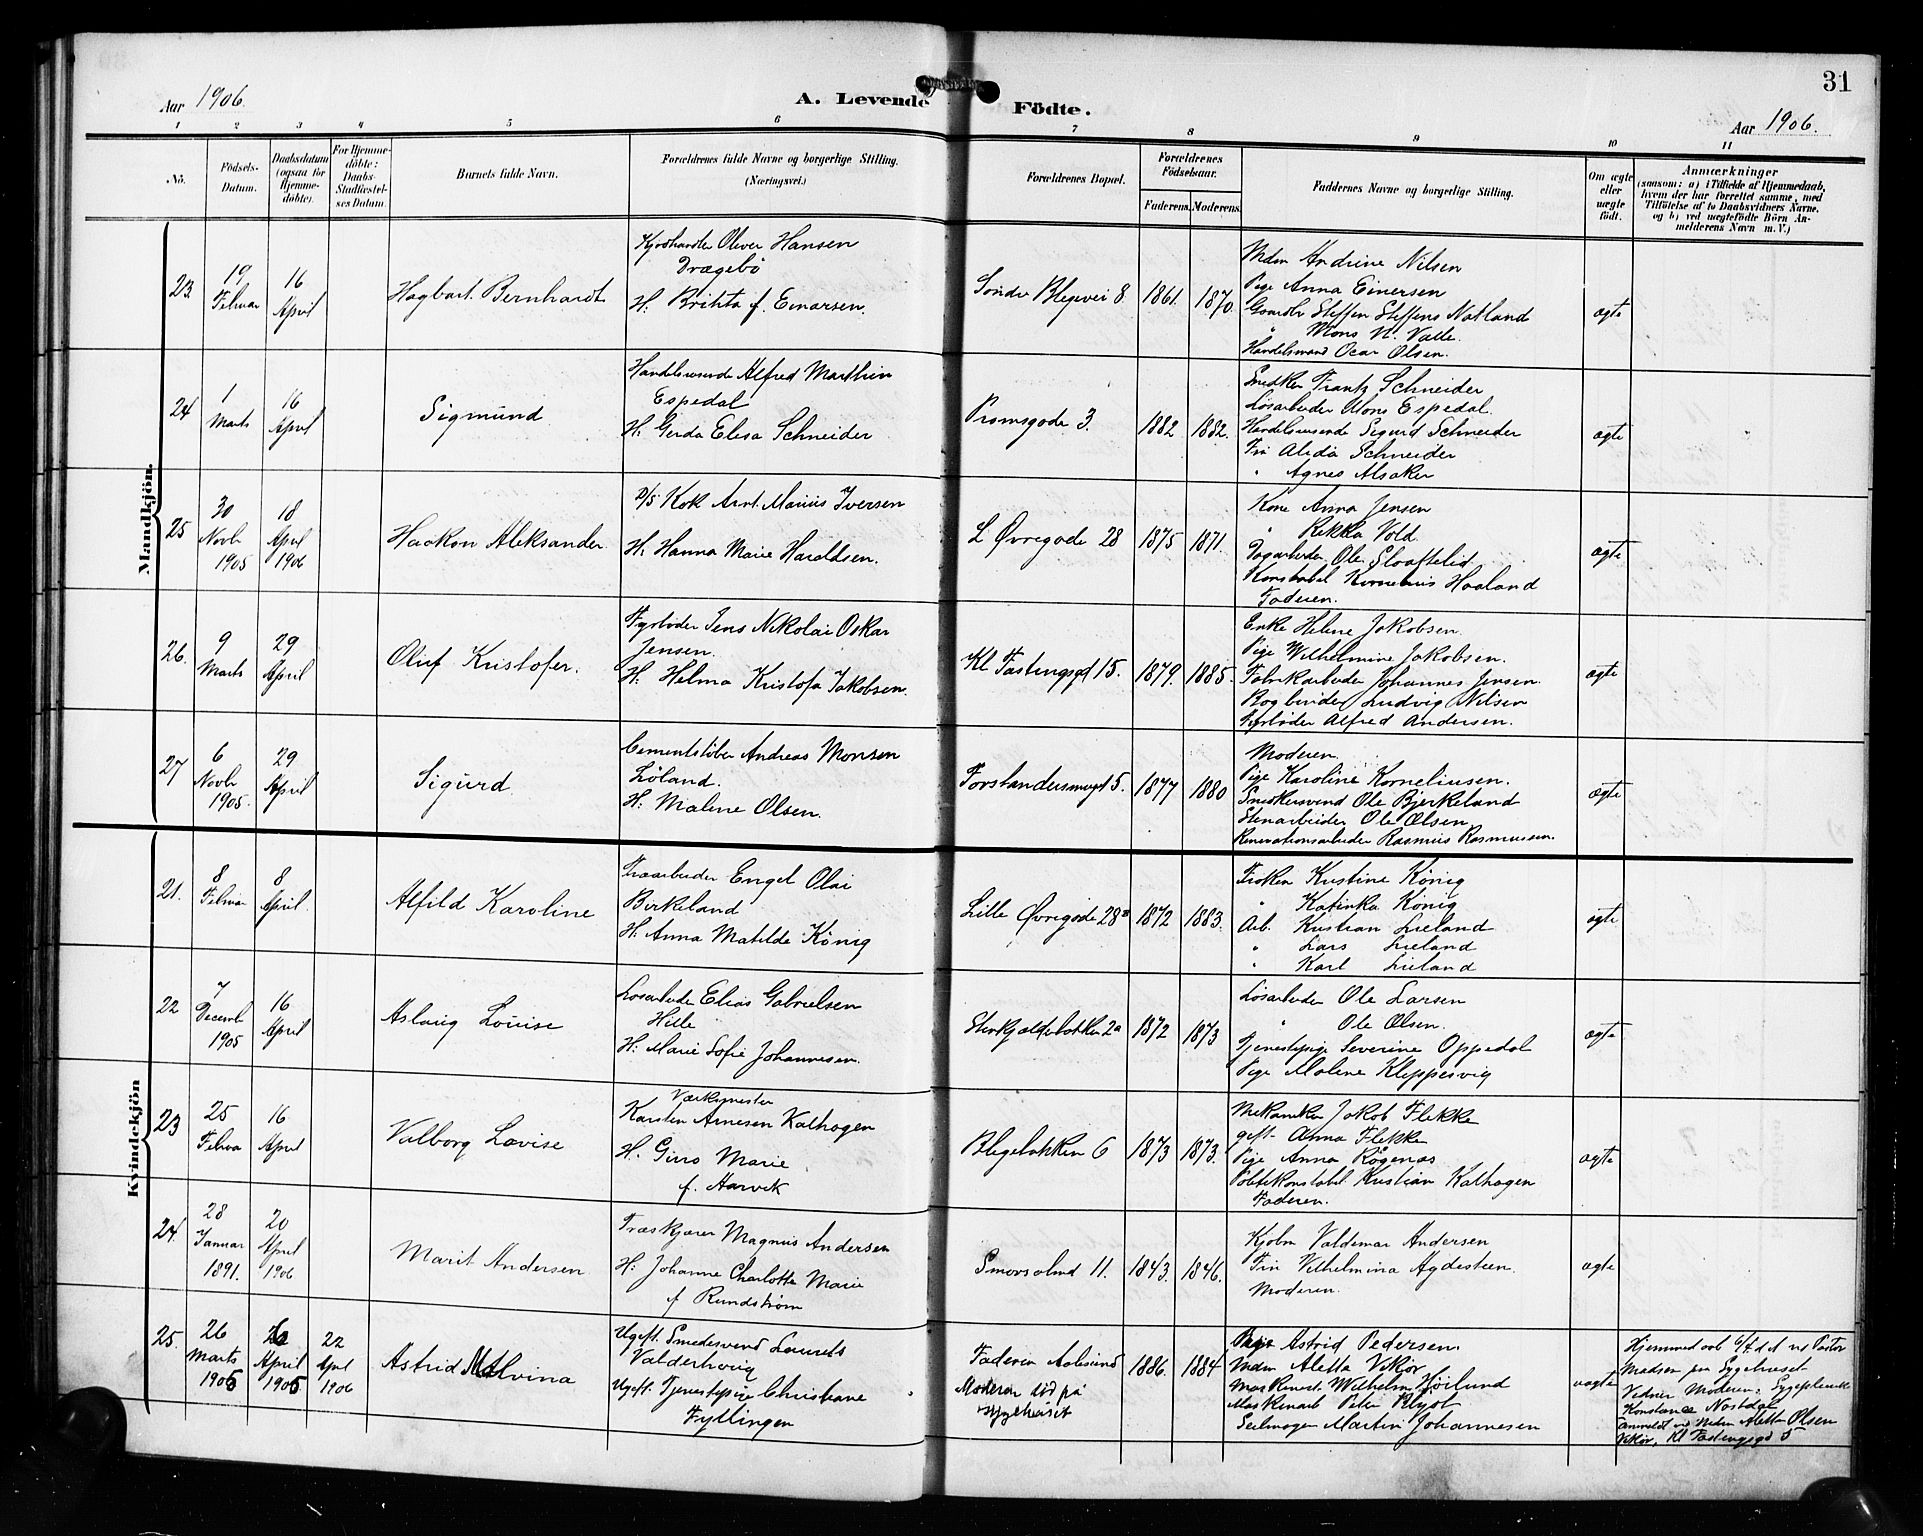 31
Aar 1906.
A. Levende Födte.
Aar 1906.
1 2 3 4 5 6 7 8 9 10 11
No.
Födsels-Datum.
Daabsdatum (ogsaa for Hjemmedöbte).
For Hjemmedöbte: Daabs-Stadfæstelses Datum.
Barnets fulde Navn.
Forældrenes fulde Navne og borgerlige Stilling.
(Næringsvei.)
Forældrenes Bopæl.
Forældrenes Födselsaar.
Faderens. Moderens.
Faddernes Navne og borgerlige Stilling.
Om ægte eller uægte födt.
Anmærkninger
(saasom: a) i Tilfælde af Hjemmedaab,
hvem der har forrettet samme, med
Tilföielse af to Daabsvidners Navne,
og b) ved uægtefödte Börn An-
melderens Navn m. V.)
Mandkjön.
23.
19 Februar
16 April
Hagbart Bernhardt
Oliver Hansen
Dragebö
H. Brihta f. Einarsen.
Söndr Blegevei 8.
1861.
1870.
Mdm Andrine Nilsen
Pige Anna Einersen
Gaardbr Steffen Steffens Natland
" Mons N. Valle.
Handelsmand Ocar Olsen.
ægte
24
1 Marts
16 April
Sigmund
Handelsreisende Alfred Marthin
Espedal
H. Gerda Elisa Schneider
Promsgade 3.
1882
1882.
Snedker Frantz Schneider
Løsarbeider Mons Espedal.
Handelsreisende Sigurd Schneider
Frü Alida Schneider
" Agnes Alsaker
ægte
25
30 Novbr 1905
18 April 1906
Haakon Aleksander
D/S Kok Arnt Marius Iversen
H. Hanna Marie Haraldsen.
L Øvregade 28
1875
1871.
Kone Anna Jensen
" Rikka Vold.
Dagarbeider Ole Slaattelid
Konstabel Kornelius Haaland
Faderen.
ægte
26.
9 Marts
29 April
Oluf Kristofer.
Fyrbøder Jens Nikolai Oskar
Jensen.
H. Helma Kristofa Jakobsen.
Kl. Fastingsgd 15.
1879.
1885.
Enke Helene Jakobsen.
Pige Wilhelmine Jakobsen.
Fabrikarbeider Johannes Jensen.
Bogbinder Ludvig Nilsen
Fyrbøder Alfred Andersen.
ægte
27
6 Novbr 1905.
29 April
Sigurd.
Cementstøber Andreas Monsen
Løland.
H. Malene Olsen.
Forstandersmugt 5.
1877
1880
Moderen.
Pige Karoline Korneliusen.
Snedkersvend Ole Bjerkeland
Stenarbeider Ole Olsen
Renovationsarbeider Rasmus Rasmussen.
ægte
Kvindekjön
21.
8 Februar
8 April.
Alfild Karoline
Træarbeider Engel Olai
Birkeland
H. Anna Matilde König
Lille Øvregade 28ᴮ
1872
1883.
Frøken Kristine König
" Katinka König
Arb. Kristian Lieland
" Lars Lieland
" Karl Lieland
ægte
22
7 Decemb 1905
16 April
Aslaug Louise
Løsarbeider Elias Gabrielsen
Hille
H. Marie Sofie Johannesen.
2a
1872
1873
Løsarbeider Ole Larsen
" Ole Olsen.
Tjenestepige Severine Oppedal
Pige Malene Kleppesvig
ægte
23
25 Februa
16 April
Valborg Lovise
Værksmester
Karsten Arnesen Kalhagen
H. Marie
f. Aarvik
Blegebakken 6
1873
1873.
Mekaniker Jakob Flekke
gift Anna Flekke
Pige Anna Rögenæs
Politikonstabel Kristian Kalhagen
Faderen.
ægte
24.
28 Januar 1891.
20 April 1906
Marit Andersen
Træskjærer Magnus Andersen
H. Johanne Charlotte Marie
f Rundström
Smørsalmd 11.
1843.
1846.
Kjøbm Valdemar Andersen
Frü Vilhelmina Agdesteen.
Moderen.
ægte
25.
26 Marts 1905
April 1905
22 April 1906
Astrid Malvina
Ugift Smedesvend Laurits
Valderhaug
Ugift Tjenestepige Christiane
Fyllingen
Faderen Aalesund
Moderen död på
sygehuset
1886.
1884
Pige Astrid Pedersen.
Mdm Aletta Vikør
Maskinarb. Wilhelm Höilund
Maskinarb Peter
Seilmager Martin Johannesen
uægte
Hjemmedöbt d. a. ved Pastor
Madsen paa Sygehuset
Vidner Moderen, Sygepleierske
Konstance Nøstdal
anmeldt ved Mdm Aletta Olsen
Vikør, Kl Fastingsgd 5